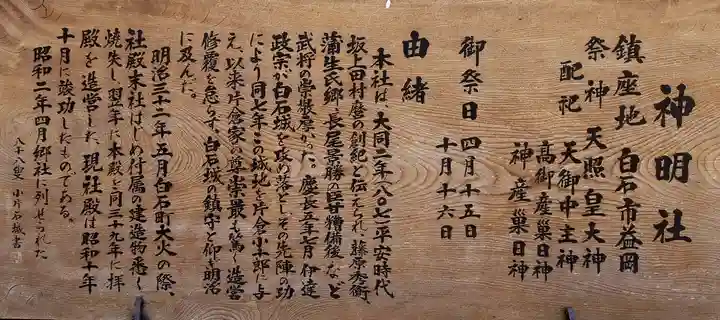 神明社
鎮座地 白石市益岡
祭神 天照皇大神
配祀 天御中主神
高御産巣日神
神産巣日神
御祭日 四月十五日
十月十六日
由緒
本社は、大同二年(八〇七)平安時代
坂上田村麿の創祀と伝えられ、藤原秀衡、
蒲生氏郷、長尾景勝の臣甘糟備後など
武将の崇敬厚かった。慶長五年七月伊達
政宗が白石城を攻め落とし、その先陣の功
により同七年この城地を片倉小十郎に与
え、以来片倉家の尊崇最も篤く造営
修覆を怠らず、白石城の鎮守と仰ぎ明治
に及んだ。
明治三十二年五月白石町大火の際、
社殿末社はじめ付属の建造物悉く
焼失し、翌年に本殿を同三十九年に拝
殿を造営した。現社殿は昭和十年
十月に竣功したものである。
昭和二年四月郷社に列せられた
八十八叟 小片石城書